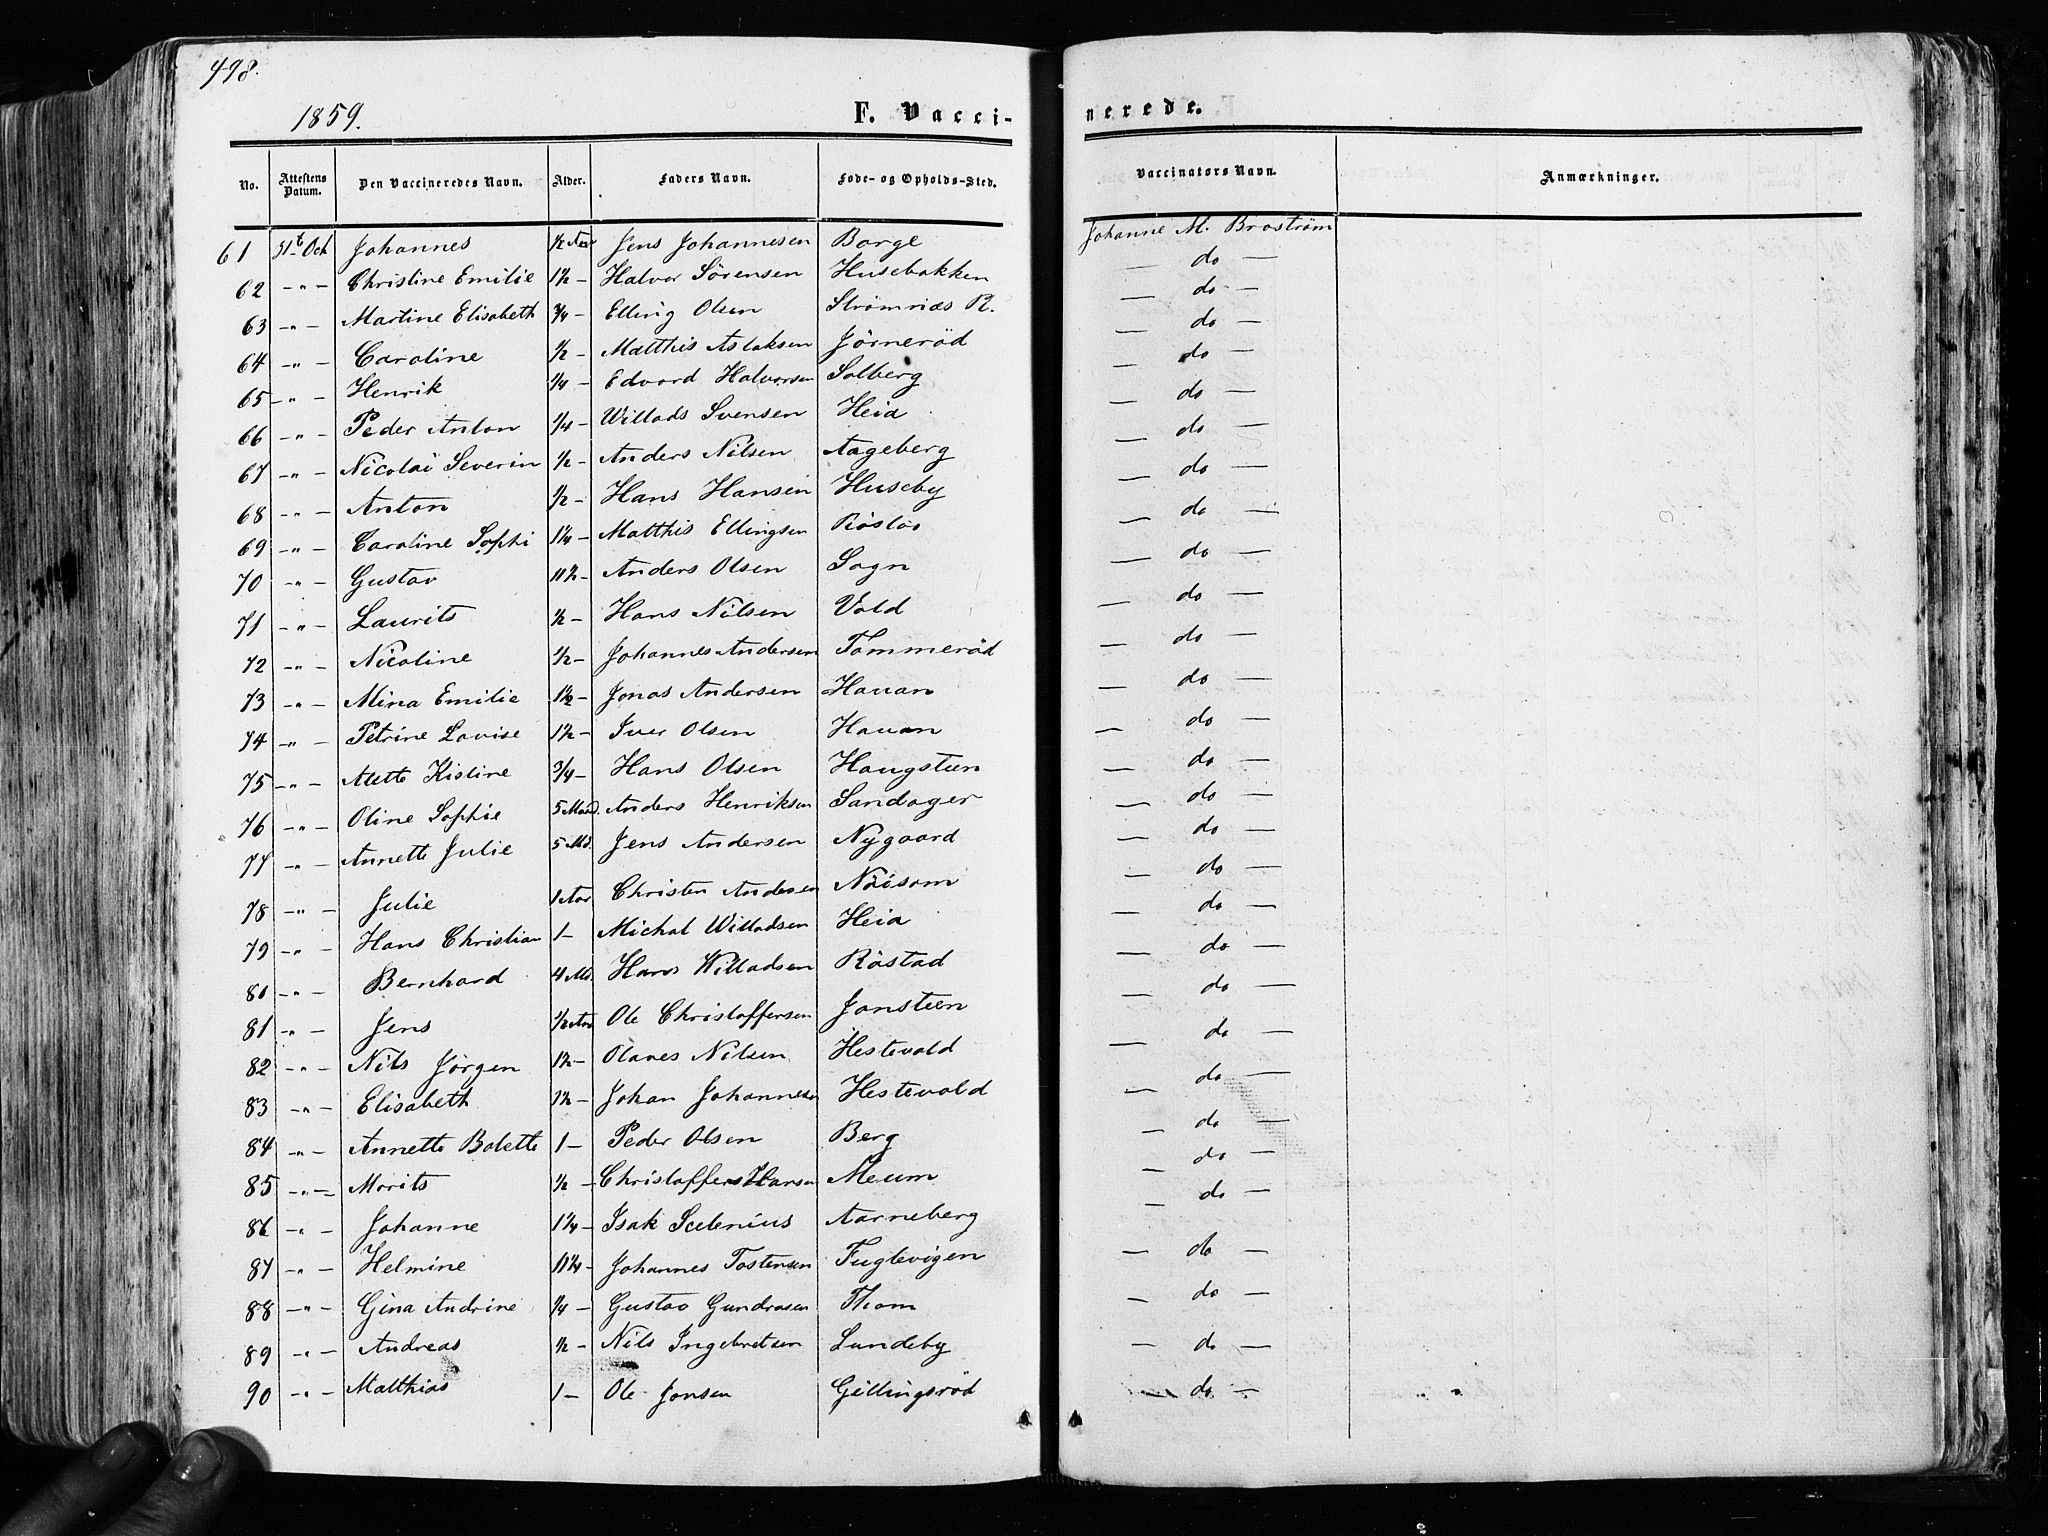 498.
1859. F. Vacci- nerede.
No. Attestens Datum. Den Vaccineredes Navn. Alder. Faders Navn. Føde- og Opholds-Sted. Vaccinators Navn. Anmærkninger.
61 31t Oct Johannes ½ Aar Jens Johannesen Borge Johanne M. Broström
62 -"- Christine Emilie 1½ - Halvor Sörensen Husebakken — do —
63 -"- Martine Elisabeth ¾ - Elling Olsen Strømnæs R. — do —
64 -"- Caroline ½ - Matthis Aslaksen Jörneröd — do —
65 -"- Henrik ¼ - Edvard Halvorsen Solberg — do —
66 -"- Peder Anton ¼ - Willads Svensen Heia — do —
67 -"- Nicolai Severin ½ - Anders Nilsen Aageberg — do —
68 -"- Anton ½ - Hans Hansen Huseby — do —
69 -"- Caroline Sophi 1¼ - Matthis Ellingsen — do —
70 -"- Gustav 11½ - Anders Olsen Sogn — do —
71 -"- Laurits ½ - Hans Nilsen Vold — do —
72 -"- Nicoline ½ - Johannes Andersen Tommeröd — do —
73 -"- Mina Emilie 1½ - Jonas Andersen Hauan — do —
74 -"- Petrine Lovise 1½ - Iver Olsen Hauan — do —
75 -"- Alette Kistine ¾ - Hans Olsen Haugsteen — do —
76 -"- Oline Sophie 5 Maad. Anders Henriksen Sandager — do —
77 -"- Annette Julie 5 Md. Jens Andersen Nygaard — do —
78 -"- Julie 1 Aar Christen Andersen Nöisom — do —
79 -"- Hans Christian 1 - Michal Willadsen Heia — do —
80 -"- Bernhard 4 Md. Hans Willadsen Röstad — do —
81 -"- Jens ½ Aar Ole Christoffersen Jonsteen — do —
82 -"- Nils Jørgen 1½ - Olaves Nilsen Hestevold — do —
83 -"- Elisabeth 1½ - Johan Johannesen Hestevold — do —
84 -"- Annette Bolette 1 - Peder Olsen Berg — do —
85 -"- Morits ½ - Christoffer Hansen Meum — do —
86 -"- Johanne 1¼ - Isak Scelenius Aarneberg — do —
87 -"- Helmine 11¼ - Johannes Tostensen Fuglevigen — do —
88 -"- Gina Andrine ¼ - Gustav Gundrosen Thom — do —
89 -"- Andreas ½ - Nils Ingebretsen Lundeby — do —
90 -"- Matthias 1 - Ole Jonsen Gillingsröd — do —